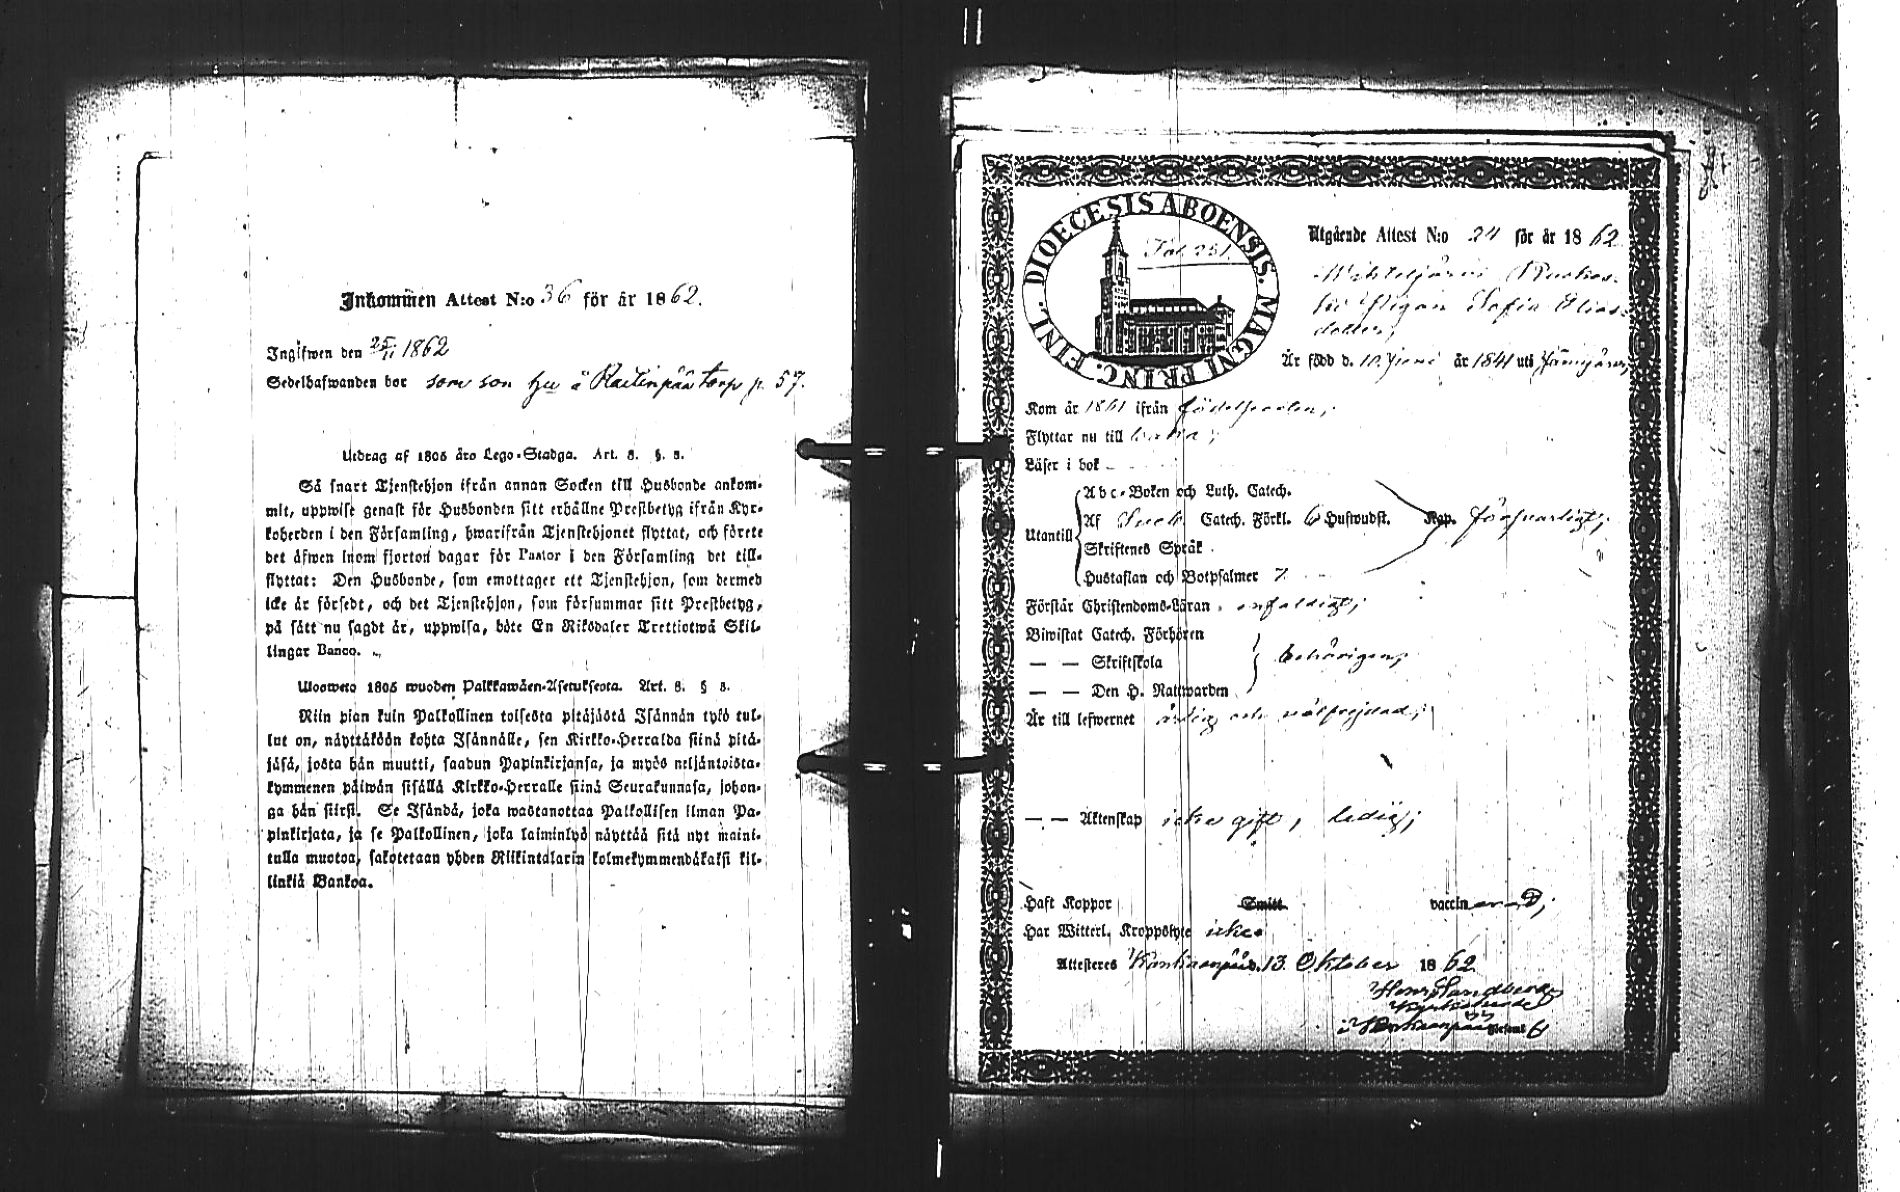 Inkommen Attest N:o 36 för år 1862.
Ingifwen den 25/11 1862
Sedelhafwanden bor som son hu å Raitinpää torp p. 57.
Utdrag af 1805 års Lego-Stadga. Art. 8. §. 5.
Så snart Tjenstehjon ifrån annan Socken till Husbonde ankom-
mit, uppwise genast för Husbonden sitt erhållne Prestbetyg ifrån Kyr-
koherden i den Församling, hwarifrån Tjenstehjonet flyttat, och förete
det äfwen inom fjorton dagar för Pastor i den Församling det till-
flyttat: Den Husbonde, som emottager ett Tjenstehjon, som dermed
icke är försedt, och det Tjenstehjon, som försummar sitt Prestbetyg,
på sätt nu sagdt är, uppwisa, böte En Riksdaler Trettiotwå Skil-
lingar Banco.
Wuoweto 1805 wuoden Palkkawäen-Asetuksesta. Art. 8. § 5.
Niin pian kuin Palkollinen toisesta pitäjästä Isännän työö tul-
lut on, näyttäkään kohta Isännälle, sen Kirkko-Herralda siinä pitä-
jäsä, josta hän muutti, saadun Papinkirjansa, ja myös neljäntoista-
kymmenen päiwän sisällä Kirkko-Herralle siinä Seurakunnasa, johon-
ga hän siirsi. Se Isändä, joka wastanottaa Palkollisen ilman Pa-
pinkirjata, ja se Palkollinen, joka laiminlyö näyttää sitä nyt maini-
tulla muotoa, sakotetaan yhden Riikintalarin kolmekymmendäkaksi kil-
linkiä Bankoa.
DIOECESIS ABOENSIS. MAGNI PRINC. FINL.
Fol. 251.
Utgående Attest N:o 24 för år 1862
Pigan Sofia Elias-
dotter,
Är född d. 10 Juni år 1841 uti Jämijärvi,
Kom år 1861 ifrån födelseorten;
Flyttar nu till
Läser i bok
Abc-Boken och Luth. Catech.
Utantill Af Sveb. Catech. Förkl. 6 Hufwudst. Kap. försvarligt;
Skriftenes Språk
Hustaflan och Botpsalmer 7.
Förstår Christendoms-Läran enfaldigt;
Biwistat Catech. Förhören
— — Skriftskola behörigen;
— — Den H. Nattwarden
Är till lefwernet ärlig och välfrejdad;
— — Äktenskap icke gift, ledig;
Haft Koppor Smitt. vaccinerad;
Har Witterl. Kroppslyte icke.
Attesteras Kankaanpää. 13. Oktober 1862
Henr. Sandberg
Kyrkoherde
i Kankaanpää